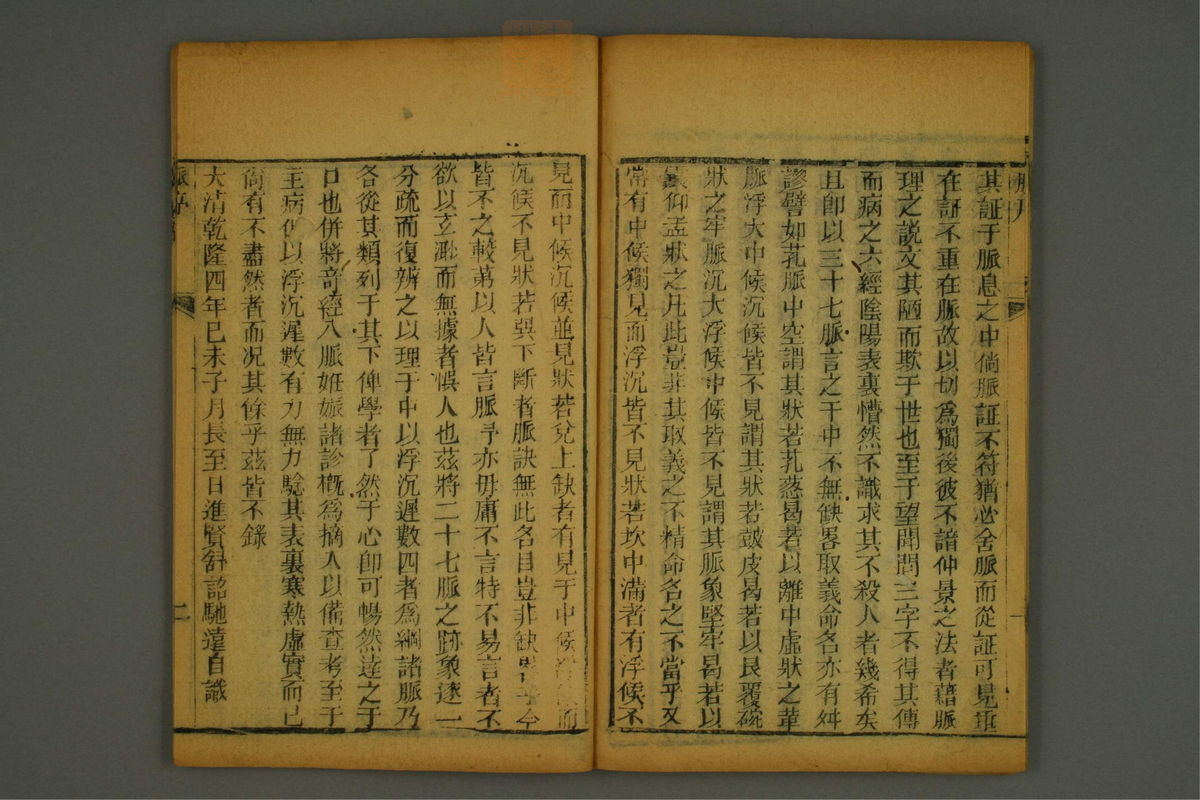 其証于脈息之中倘脈証不符猶必舍脈而從証可見重
在証不重在脈故以切為獨後彼不諳仲景之法者藉脈
理之説文其陋而欺于世也至于望聞問三字不得其傳
而病之六經陰陽表裏懵然不識求其不殺人者幾希矣
且即以三十七脈言之于中不無缺畧取義命名亦有舛
謬譬如芤脈中空謂其狀若芤葱曷若以離中虛狀之革
脈浮大中候沉候皆不見謂其狀若鼓皮曷若以艮覆碗
狀之牢脈沉大浮候中候皆不見謂其脈象堅牢曷若以
震仰盂狀之凡此豈非其取義之不精命名之不當乎又
常有中候獨見而浮沉皆不見狀若坎中滿者有浮候不
見而中候沉候並見狀若兌上缺者有見于中候而
沉候不見狀若巽下斷者脈訣無此各目豈非缺乎今
皆不之較第以人皆言脈予亦毋庸不言特不易言者不
欲以玄渺而無據者悞人也茲將二十七脈之跡象逐一
分疏而復辨之以理于中以浮沉遲數四者為綱諸脈乃
各從其類列于其下俾學者了然于心即可暢然達之于
口也併將奇經八脈姙娠諸診概為摘入以備查考至于
主病但以浮沉遲數有力無力騐其表裏寒熱虛實而已
尚有不盡然者而况其餘乎茲皆不錄
大清乾隆四年己未子月長至日進賢舒詔馳遠自識
二